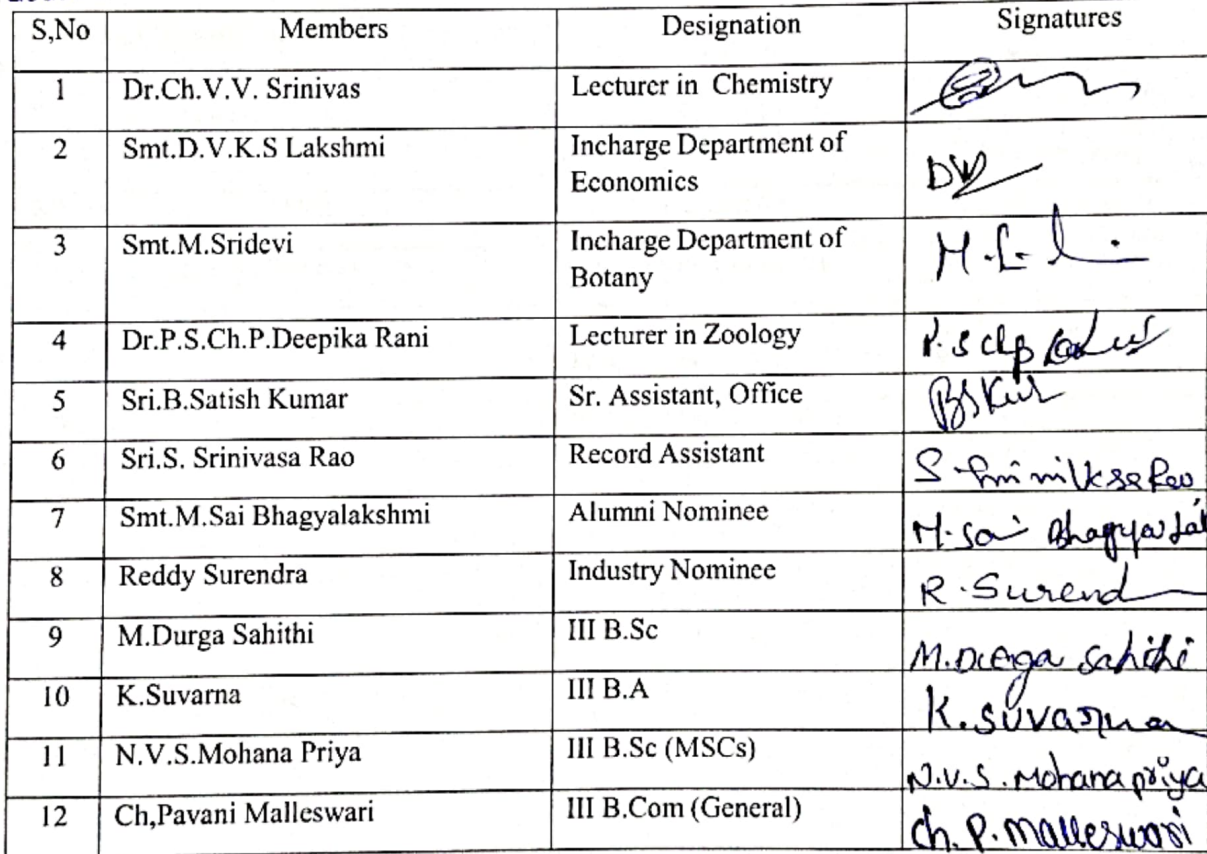 S,No Members Designation Signatures
1 Dr.Ch.V.V. Srinivas Lecturer in Chemistry
2 Smt.D.V.K.S Lakshmi Incharge Department of
Economics
3 Smt.M.Sridevi Incharge Department of
Botany
4 Dr.P.S.Ch.P.Deepika Rani Lecturer in Zoology P.S chp
5 Sri.B.Satish Kumar Sr. Assistant, Office
6 Sri.S. Srinivasa Rao Record Assistant S
7 Smt.M.Sai Bhagyalakshmi Alumni Nominee M.Sai
8 Reddy Surendra Industry Nominee R.Surend
9 M.Durga Sahithi III B.Sc M.Durga Sahithi
10 K.Suvarna III B.A K.Suvarna
11 N.V.S.Mohana Priya III B.Sc (MSCs) N.V.S. Mohana priya
12 Ch,Pavani Malleswari III B.Com (General) Ch. P. Malleswari